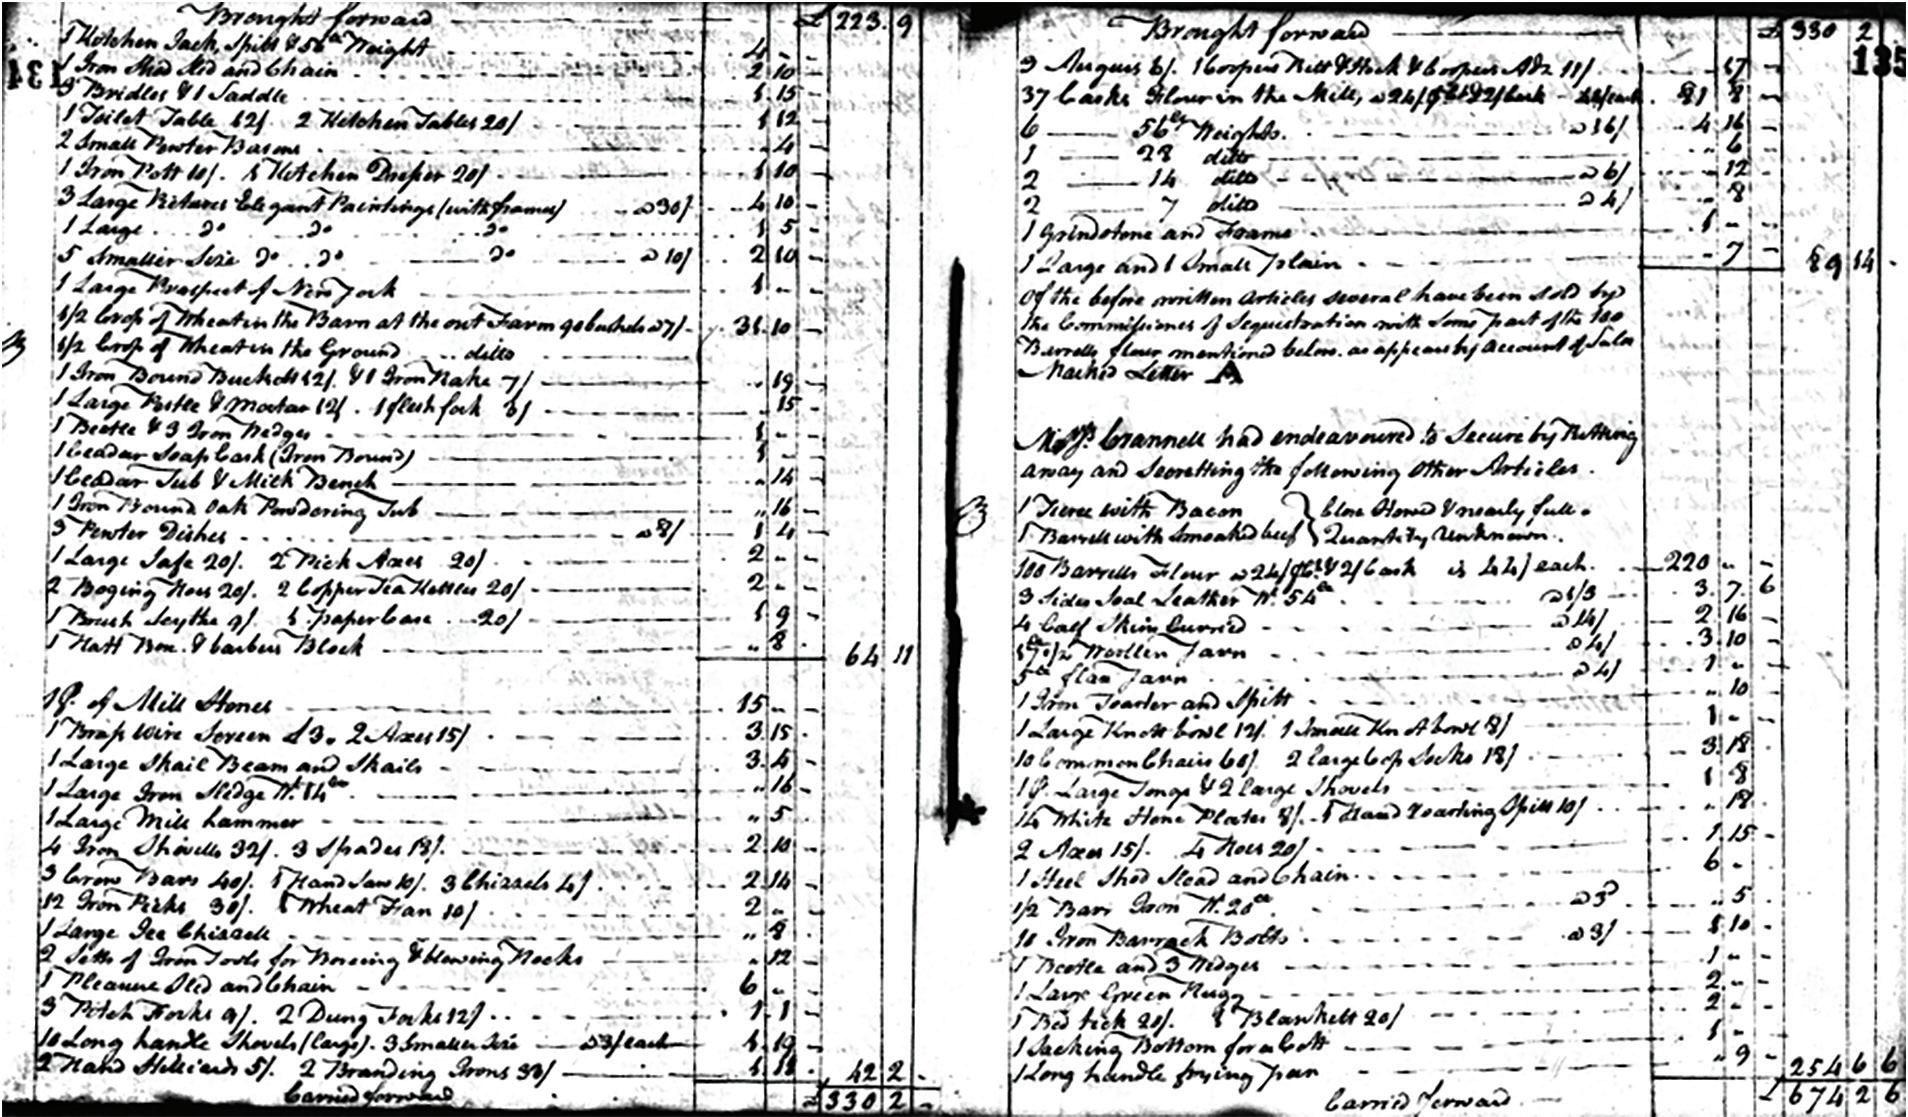 Brought forward £ 223. 9
134
1 Kitchen Jack, Spitt & 56lb Weight 4 " -
1 Iron Shod Sled and Chain 2 10 -
3 Bridles & 1 Saddle 1 15 -
1 Toilet Table 12/ 2 Kitchen Tables 20/ 1 12 -
2 Small Pewter Basons " 4 -
1 Iron Pott 10/. 1 Kitchen Dresser 20/ 1 10 -
3 Large Pictures Elegant Paintings (with frames) @ 30/ 4 10 -
1 Large Do Do Do 1 5 -
5 Smaller Size Do Do Do @ 10/ 2 10 -
1 Large Prospect of New York 1 " -
1/2 Crop of Wheat in the Barn at the out Farm 90 bushels @ 7/ 31. 10 -
1/2 Crop of Wheat in the Ground ditto
1 Iron Bound Buckett 12/. & 1 Iron Rake 7/ " 19 -
1 Large Pestle & Mortar 12/. 1 flesh fork 3/ " 15 -
1 Beetle & 3 Iron Wedges 1 " -
1 Ceadar Soap Cask (Iron Bound) 1 " -
1 Ceadar Tub & Milk Bench " 14 -
1 Iron Bound Oak Powdering Tub " 16 -
3 Pewter Dishes @ 8/ 1 4 -
1 Large Safe 20/. 2 Pick Axes 20/ 2 " -
2 Boging Hoes 20/. 2 Copper Tea Kettles 20/ 2 " -
1 Brush Scythe 9/. 1 paper Case 20/ 1 9 -
1 Hatt Box & barbers Block " 8 - 64 11
1 Pr. of Mill Stones 15 " -
1 Brass Wire Screen £3. 2 Axes 15/ 3. 15 -
1 Large Skail Beam and Skails 3. 4 -
1 Large Iron Sledge Wt. 14lb " 16 -
1 Large Mill hammer " 5 -
4 Iron Shovells 32/. 3 Spades 18/. 2 10 -
3 Crow Bars 40/. 1 Hand Saw 10/. 3 Chizzels 4/. 2. 14 -
12 Iron Picks 30/. 1 Wheat Fan 10/ 2 " -
1 Large Ice Chizzell " 8 -
2 Setts of Iron Tools for Boreing & blowing Rocks " 12 -
1 Pleasure Sled and Chain 6 " -
3 Pitch Forks 9/. 2 Dung Forks 12/ 1. 1 -
10 Long handle Shovels (large). 3 Smaller Size @ 3/ each 1. 19 -
2 Hand Stilliards 5/. 2 Branding Irons 33/ 1 18 - 42 2 -
Carried forward £ 330 2 -
Brought forward £ 330 2
135
3 Augurs 6/. 1 Coopers & Coopers Adz 11/ " 17 -
37 Casks Flour in the Mill, @ 24/ & 2/ Cask 44/ each 81 8 -
6 56lb Weights @ 16/ 4 16 -
1 28 ditto " 6 -
2 14 ditto @ 6/ " 12 -
2 7 ditto @ 4/ " 8 -
1 Grindstone and Frame 1 " -
1 Large and 1 Small plain " 7 - 89 14 -
Of the before written Articles several have been sold by
the Commissioners of Sequestration with some part of the 100
Barrells flour mentioned below. as appears by Account of Sales
Marked Letter A
Crannell had endeavoured to Secure by Putting
away and Secretting the following Other Articles.
1 Tierce with Bacon } Close Stowed & nearly full.
1 Barrell with Smoaked beef } Quantity Unknown.
100 Barrells Flour @ 24/ & 2/ Cask is 44/ each. 220 " -
3 Sides Soal Leather Wt. 54lb @ 1/3 3. 7. 6
4 Calf Skins Curried @ 14/ 2 16 -
17 1/2 Woollen Yarn @ 4/ 3. 10 -
5lb flax Yarn @ 4/ 1 " -
1 Iron Toaster and Spitt " 10 -
1 Large Knott bowl 12/. 1 Small Knott bowl 8/ 1 " -
10 Common Chairs 60/. 2 large Cop Socks 18/ 3. 18 -
1 Pr. Large Tongs & 2 large Shovels 1 8 -
14 White Stone Plates 8/. 1 Hand roasting Spitt 10/ " 18 -
2 Axes 15/. 4 Hoes 20/ 1. 15 -
1 Steel Shod Slead and Chain 6 " -
1/2 Barr Iron Wt. 20lb @ 3d " 5 -
10 Iron Barrack Bolts @ 3/ 1 10 -
1 Beetle and 3 Wedges 1 " -
1 Large Green Rugg 2 " -
1 Bed tick 20/. 2 Blanketts 20/ 2 " -
1 Sacking Bottom for a Cott 1 " -
1 Long handle frying pan " 9 - 254 6 6
Carried forward £ 674 2 6